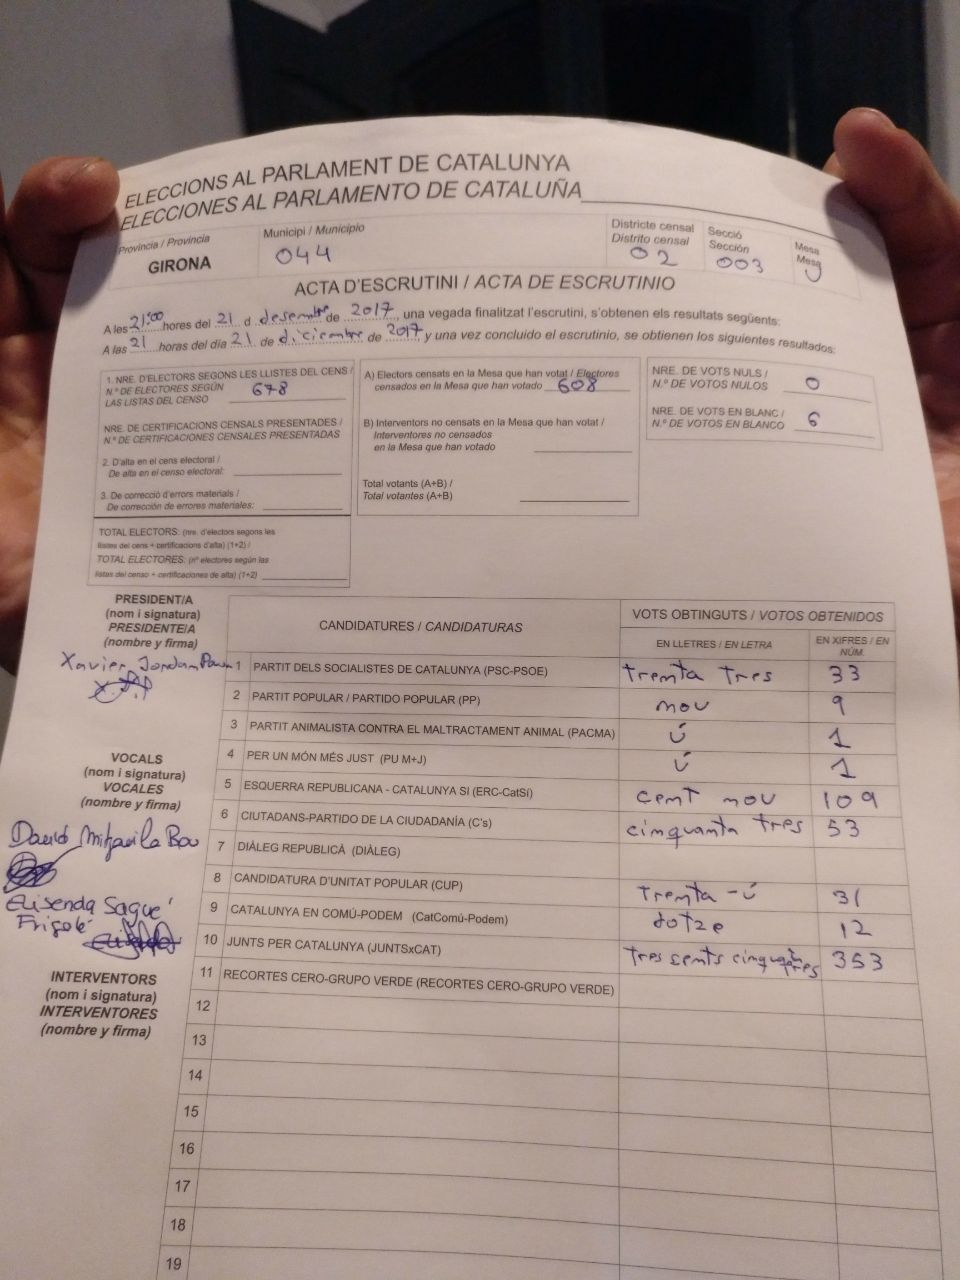 ELECCIONS AL PARLAMENT DE CATALUNYA
ELECCIONES AL PARLAMENTO DE CATALUÑA
Província / Provincia
GIRONA
Municipi / Municipio
044
Districte censal
Distrito censal
02
Secció
Sección
003
Mesa
Mesa
U
ACTA D'ESCRUTINI / ACTA DE ESCRUTINIO
A les 21:00 hores del 21 d desembre de 2017, una vegada finalitzat l'escrutini, s'obtenen els resultats següents:
A las 21 horas del día 21 de diciembre de 2017, y una vez concluido el escrutinio, se obtienen los siguientes resultados:
1. NRE. D'ELECTORS SEGONS LES LLISTES DEL CENS /
N.º DE ELECTORES SEGÚN
LAS LISTAS DEL CENSO 678
NRE. DE CERTIFICACIONS CENSALS PRESENTADES /
N.º DE CERTIFICACIONES CENSALES PRESENTADAS
2. D'alta en el cens electoral /
De alta en el censo electoral:
3. De correcció d'errors materials /
De corrección de errores materiales:
TOTAL ELECTORS: (nre. d'electors segons les
llistes del cens + certificacions d'alta) (1+2) /
TOTAL ELECTORES: (nº electores según las
listas del censo + certificaciones de alta) (1+2)
A) Electors censats en la Mesa que han votat / Electores
censados en la Mesa que han votado 608
B) Interventors no censats en la Mesa que han votat /
Interventores no censados
en la Mesa que han votado
Total votants (A+B) /
Total votantes (A+B)
NRE. DE VOTS NULS /
N.º DE VOTOS NULOS 0
NRE. DE VOTS EN BLANC /
N.º DE VOTOS EN BLANCO 6
PRESIDENT/A
(nom i signatura)
PRESIDENTE/A
(nombre y firma)
Xavier Jordan
VOCALS
(nom i signatura)
VOCALES
(nombre y firma)
David
Elisenda Sagué
Frigolé
INTERVENTORS
(nom i signatura)
INTERVENTORES
(nombre y firma)
CANDIDATURES / CANDIDATURAS
VOTS OBTINGUTS / VOTOS OBTENIDOS
EN LLETRES / EN LETRA
EN XIFRES / EN NÚM.
1 PARTIT DELS SOCIALISTES DE CATALUNYA (PSC-PSOE) trenta tres 33
2 PARTIT POPULAR / PARTIDO POPULAR (PP) nou 9
3 PARTIT ANIMALISTA CONTRA EL MALTRACTAMENT ANIMAL (PACMA) ú 1
4 PER UN MÓN MÉS JUST (PU M+J) ú 1
5 ESQUERRA REPUBLICANA - CATALUNYA SÍ (ERC-CatSí) cent nou 109
6 CIUTADANS-PARTIDO DE LA CIUDADANÍA (C's) cinquanta tres 53
7 DIÀLEG REPUBLICÀ (DIÀLEG)
8 CANDIDATURA D'UNITAT POPULAR (CUP) trenta-ú 31
9 CATALUNYA EN COMÚ-PODEM (CatComú-Podem) dotze 12
10 JUNTS PER CATALUNYA (JUNTSxCAT) tres sents cinquanta tres 353
11 RECORTES CERO-GRUPO VERDE (RECORTES CERO-GRUPO VERDE)
12
13
14
15
16
17
18
19